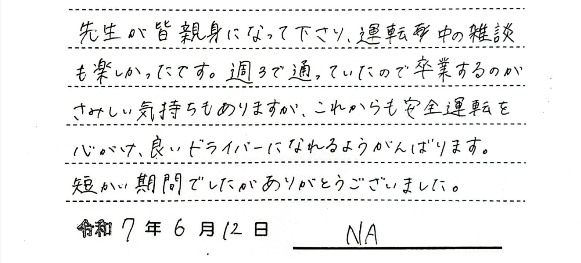 先生が皆親身になって下さり、運転中の雑談
も楽しかったです。週3で通っていたので卒業するのが
さみしい気持ちもありますが、これからも安全運転を
心がけ、良いドライバーになれるようがんばります。
短かい期間でしたがありがとうございました。
令和7年6月12日 NA